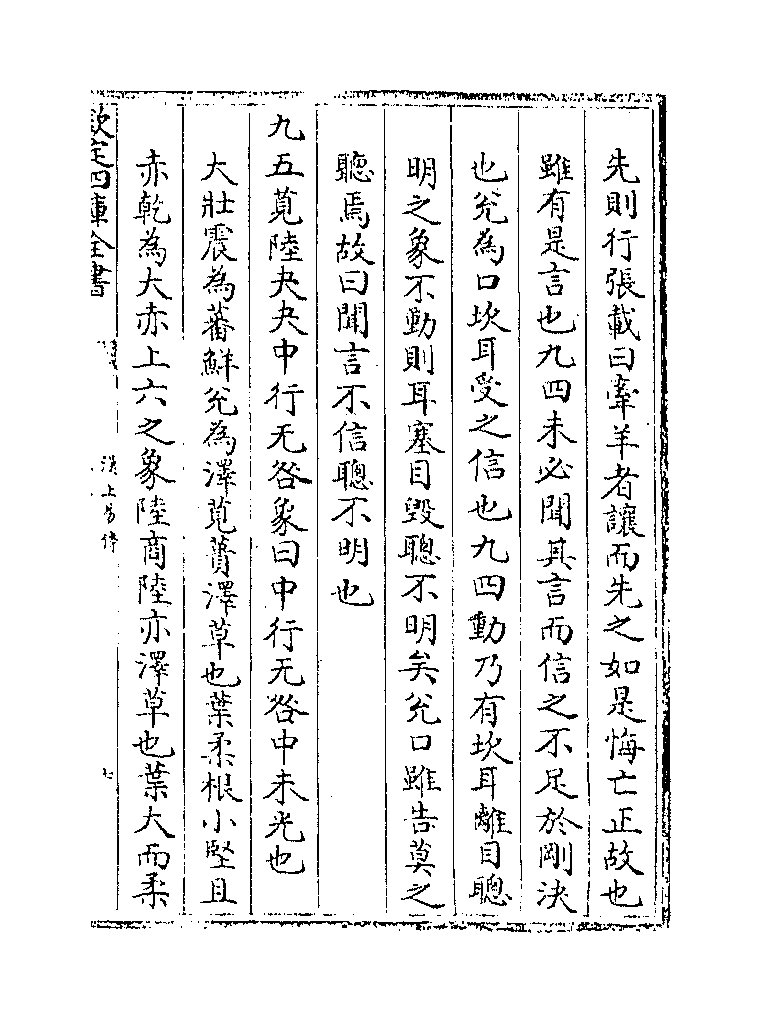 先則行張載曰牽羊者讓而先之如是悔亡正故也
雖有是言也九四未必聞其言而信之不足於剛決
也兊為口坎耳受之信也九四動乃有坎耳離目聰
明之象不動則耳塞目毀聰不明矣兊口雖告莫之
聽焉故曰聞言不信聰不明也
九五莧陸夬夬中行无咎象曰中行无咎中未光也
大壯震為蕃鮮兊為澤莧蕢澤草也葉柔根小堅且
赤乾為大赤上六之象陸商陸亦澤草也葉大而柔
欽定四庫全書
漢上易傳
七